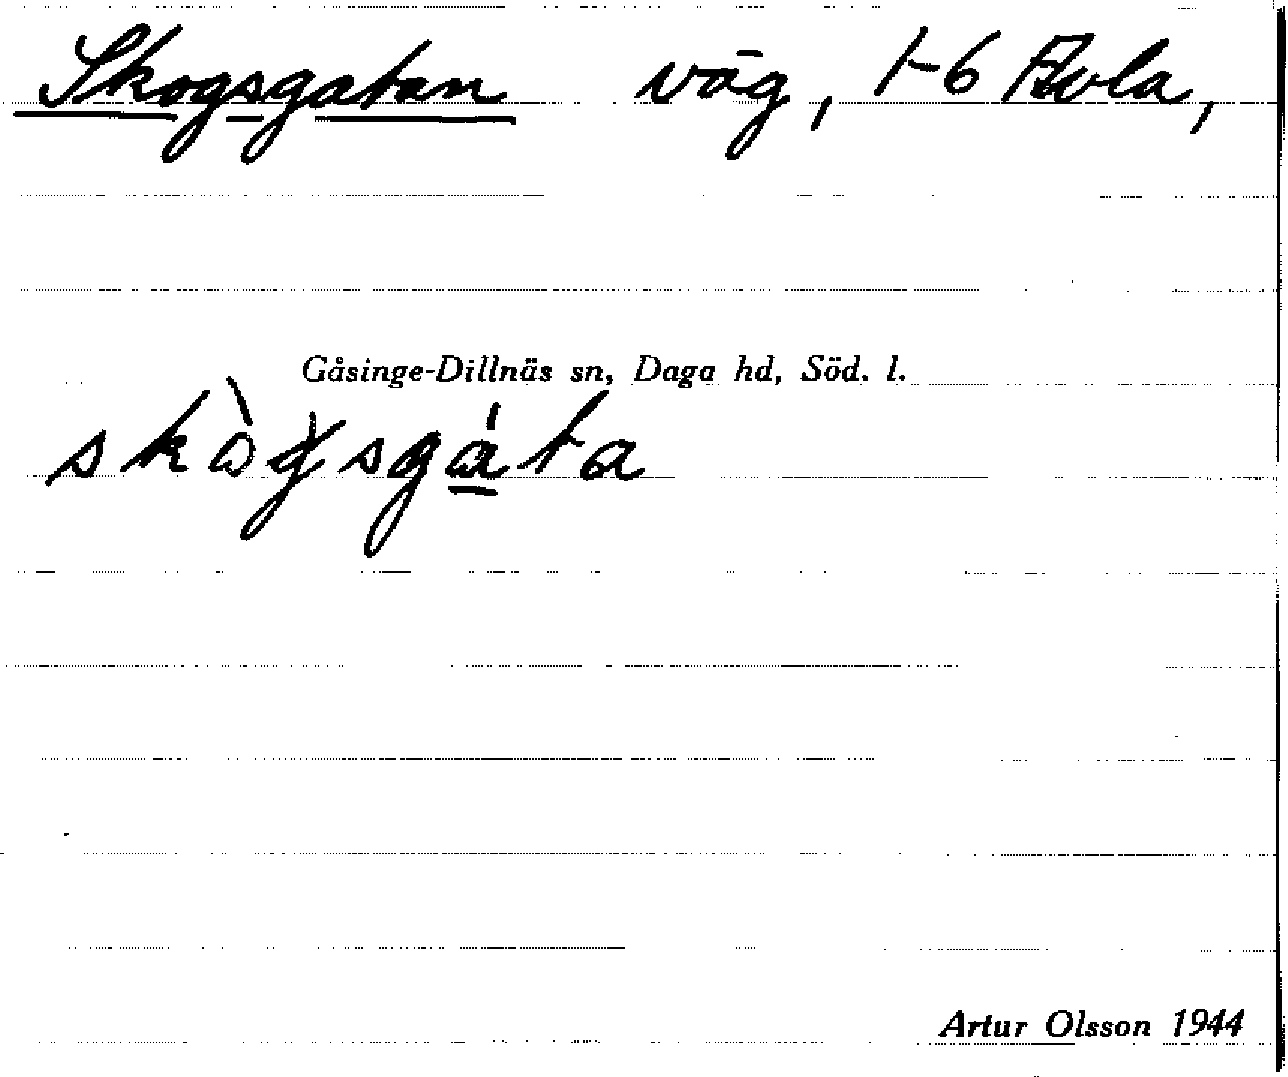 Skogsgatan väg, 1-6
Gåsinge-Dillnäs sn, Daga hd, Söd. l.
Artur Olsson 1944